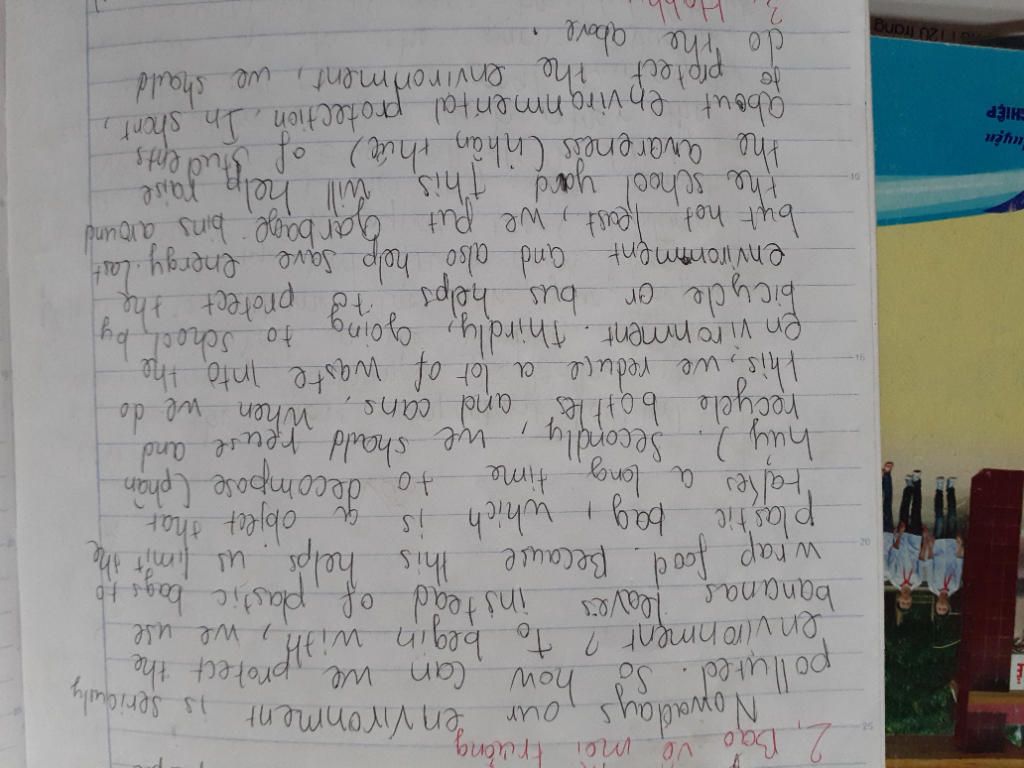 2, Bảo vệ môi trường
Nowadays, our environment is seriously
polluted. So how can we protect the
environment? To begin with, we use
bananas leaves instead of plastic bags to
wrap food. Because this helps us limit the
plastic bag, which is a object that
takes a long time to decompose (phân
hủy). Secondly, we should reuse and
recycle bottles and cans. When we do
this, we reduce a lot of waste into the
environment. Thirdly, going to school by
bicycle or bus helps to protect the
environment and also help save energy. Last
but not least, we put garbage bins around
the school yard This will help raise
the awareness (nhận thức) of students
about environmental protection. In short,
to protect the environment, we should
do the above.
3, Hobby
25
20
15
10
120 trang